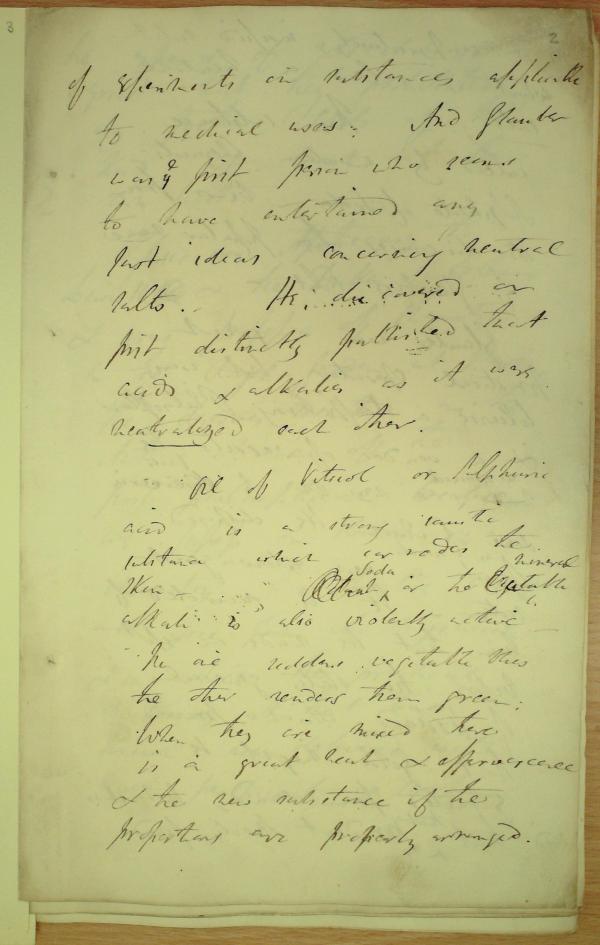 3
2
of experiments on substances applicable
to medical uses. And Glauber
was ye first person who seems
to have entertained any
just ideas concerning neutral
salts. He discovered or
first distinctly published that
acids & alkalies as it were
neutralized each other.
Oil of Vitriol or Sulphuric
acid is a strong caustic
substance which corrodes the
mineral
Skin Soda or the
alkali is also violently active
The one reddens vegetable blues
the other renders them green;
When they are mixed there
is a great heat & effervescence
& the new substance if the
proportions are properly arranged.